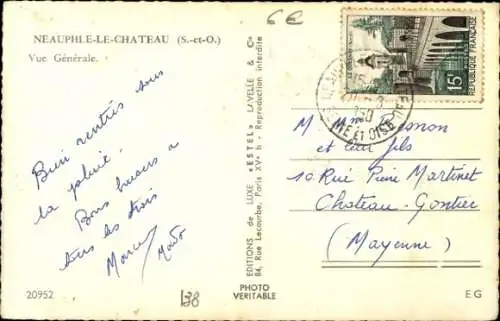 NEAUPHLE-LE-CHATEAU (S.-et-O.)
Vue Générale.
6€
Bien rentrés sous
la pluie.
Bons baisers à
tous les trois
Marcel Mado
20952
138
EDITIONS de LUXE « ESTEL » LAVELLE & Cie
84, Rue Lecourbe, Paris XVe - Reproduction interdite
PHOTO
VERITABLE
15F
REPUBLIQUE FRANÇAISE
SEINE ET OISE
M Mme Besnon
et leur fils
10 Rue Pierre Martinet
Chateau-Gontier
(Mayenne)
EG